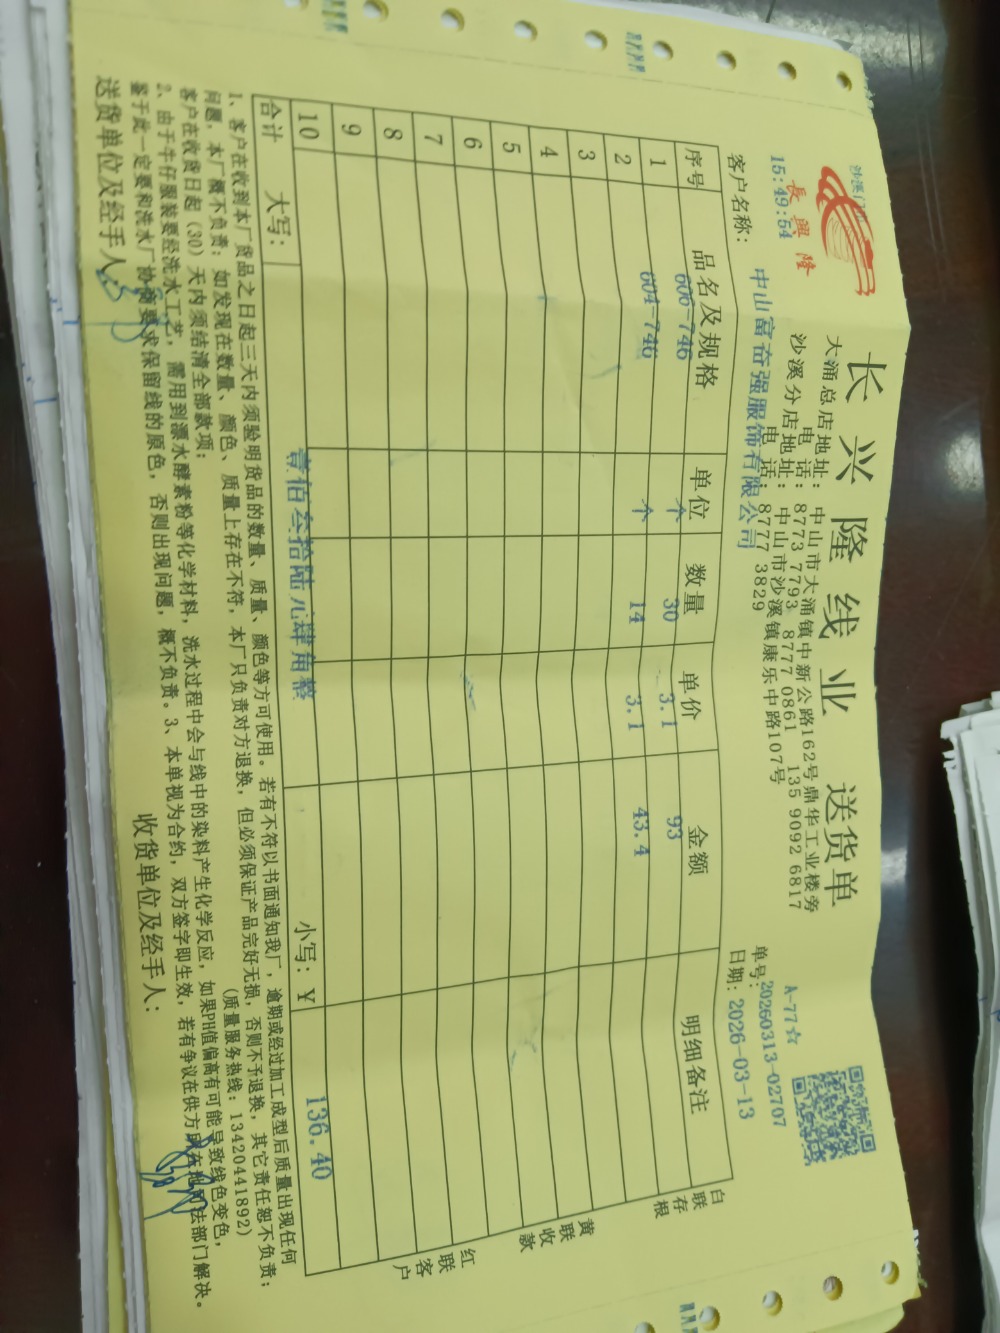 沙溪门
15:49:54
長興隆
长兴隆线业 送货单
大涌总店地址：中山市大涌镇中新公路162号鼎华工业楼旁
电话：8773 7793 8777 0861 135 9092 6817
沙溪分店地址：中山市沙溪镇康乐中路107号
电话：8777 3829
A-77☆
单号：20260313-02707
客户名称：中山富奋强服饰有限公司
日期：2026-03-13
序号 品名及规格 单位 数量 单价 金额 明细备注
1 606-746 个 30 3.1 93
2 604-746 个 14 3.1 43.4
3
4
5
6
7
8
9
10
合计 大写：壹佰叁拾陆元肆角整 小写：¥ 136.40
白联存根
黄联收款
红联客户
1、客户在收到本厂货品之日起三天内须验明货品的数量、质量、颜色等方可使用。若有不符以书面通知我厂，逾期或经过加工成型后质量出现任何
问题，本厂概不负责；如发现在数量、颜色、质量上存在不符，本厂只负责对方退换，但必须保证产品完好无损，否则不予退换，其它责任恕不负责；
客户在收货日起（30）天内须结清全部款项； （质量服务热线：13420441892）
2、由于牛仔服装要经洗水工艺，需用到漂水酵素粉等化学材料，洗水过程中会与线中的染料产生化学反应，如果PH值偏高有可能导致线色变色，
鉴于此一定要和洗水厂协商要求保留线的原色，否则出现问题，概不负责。3、本单视为合约，双方签字即生效，若有争议在供方所在地的法部门解决。
送货单位及经手人： 收货单位及经手人：